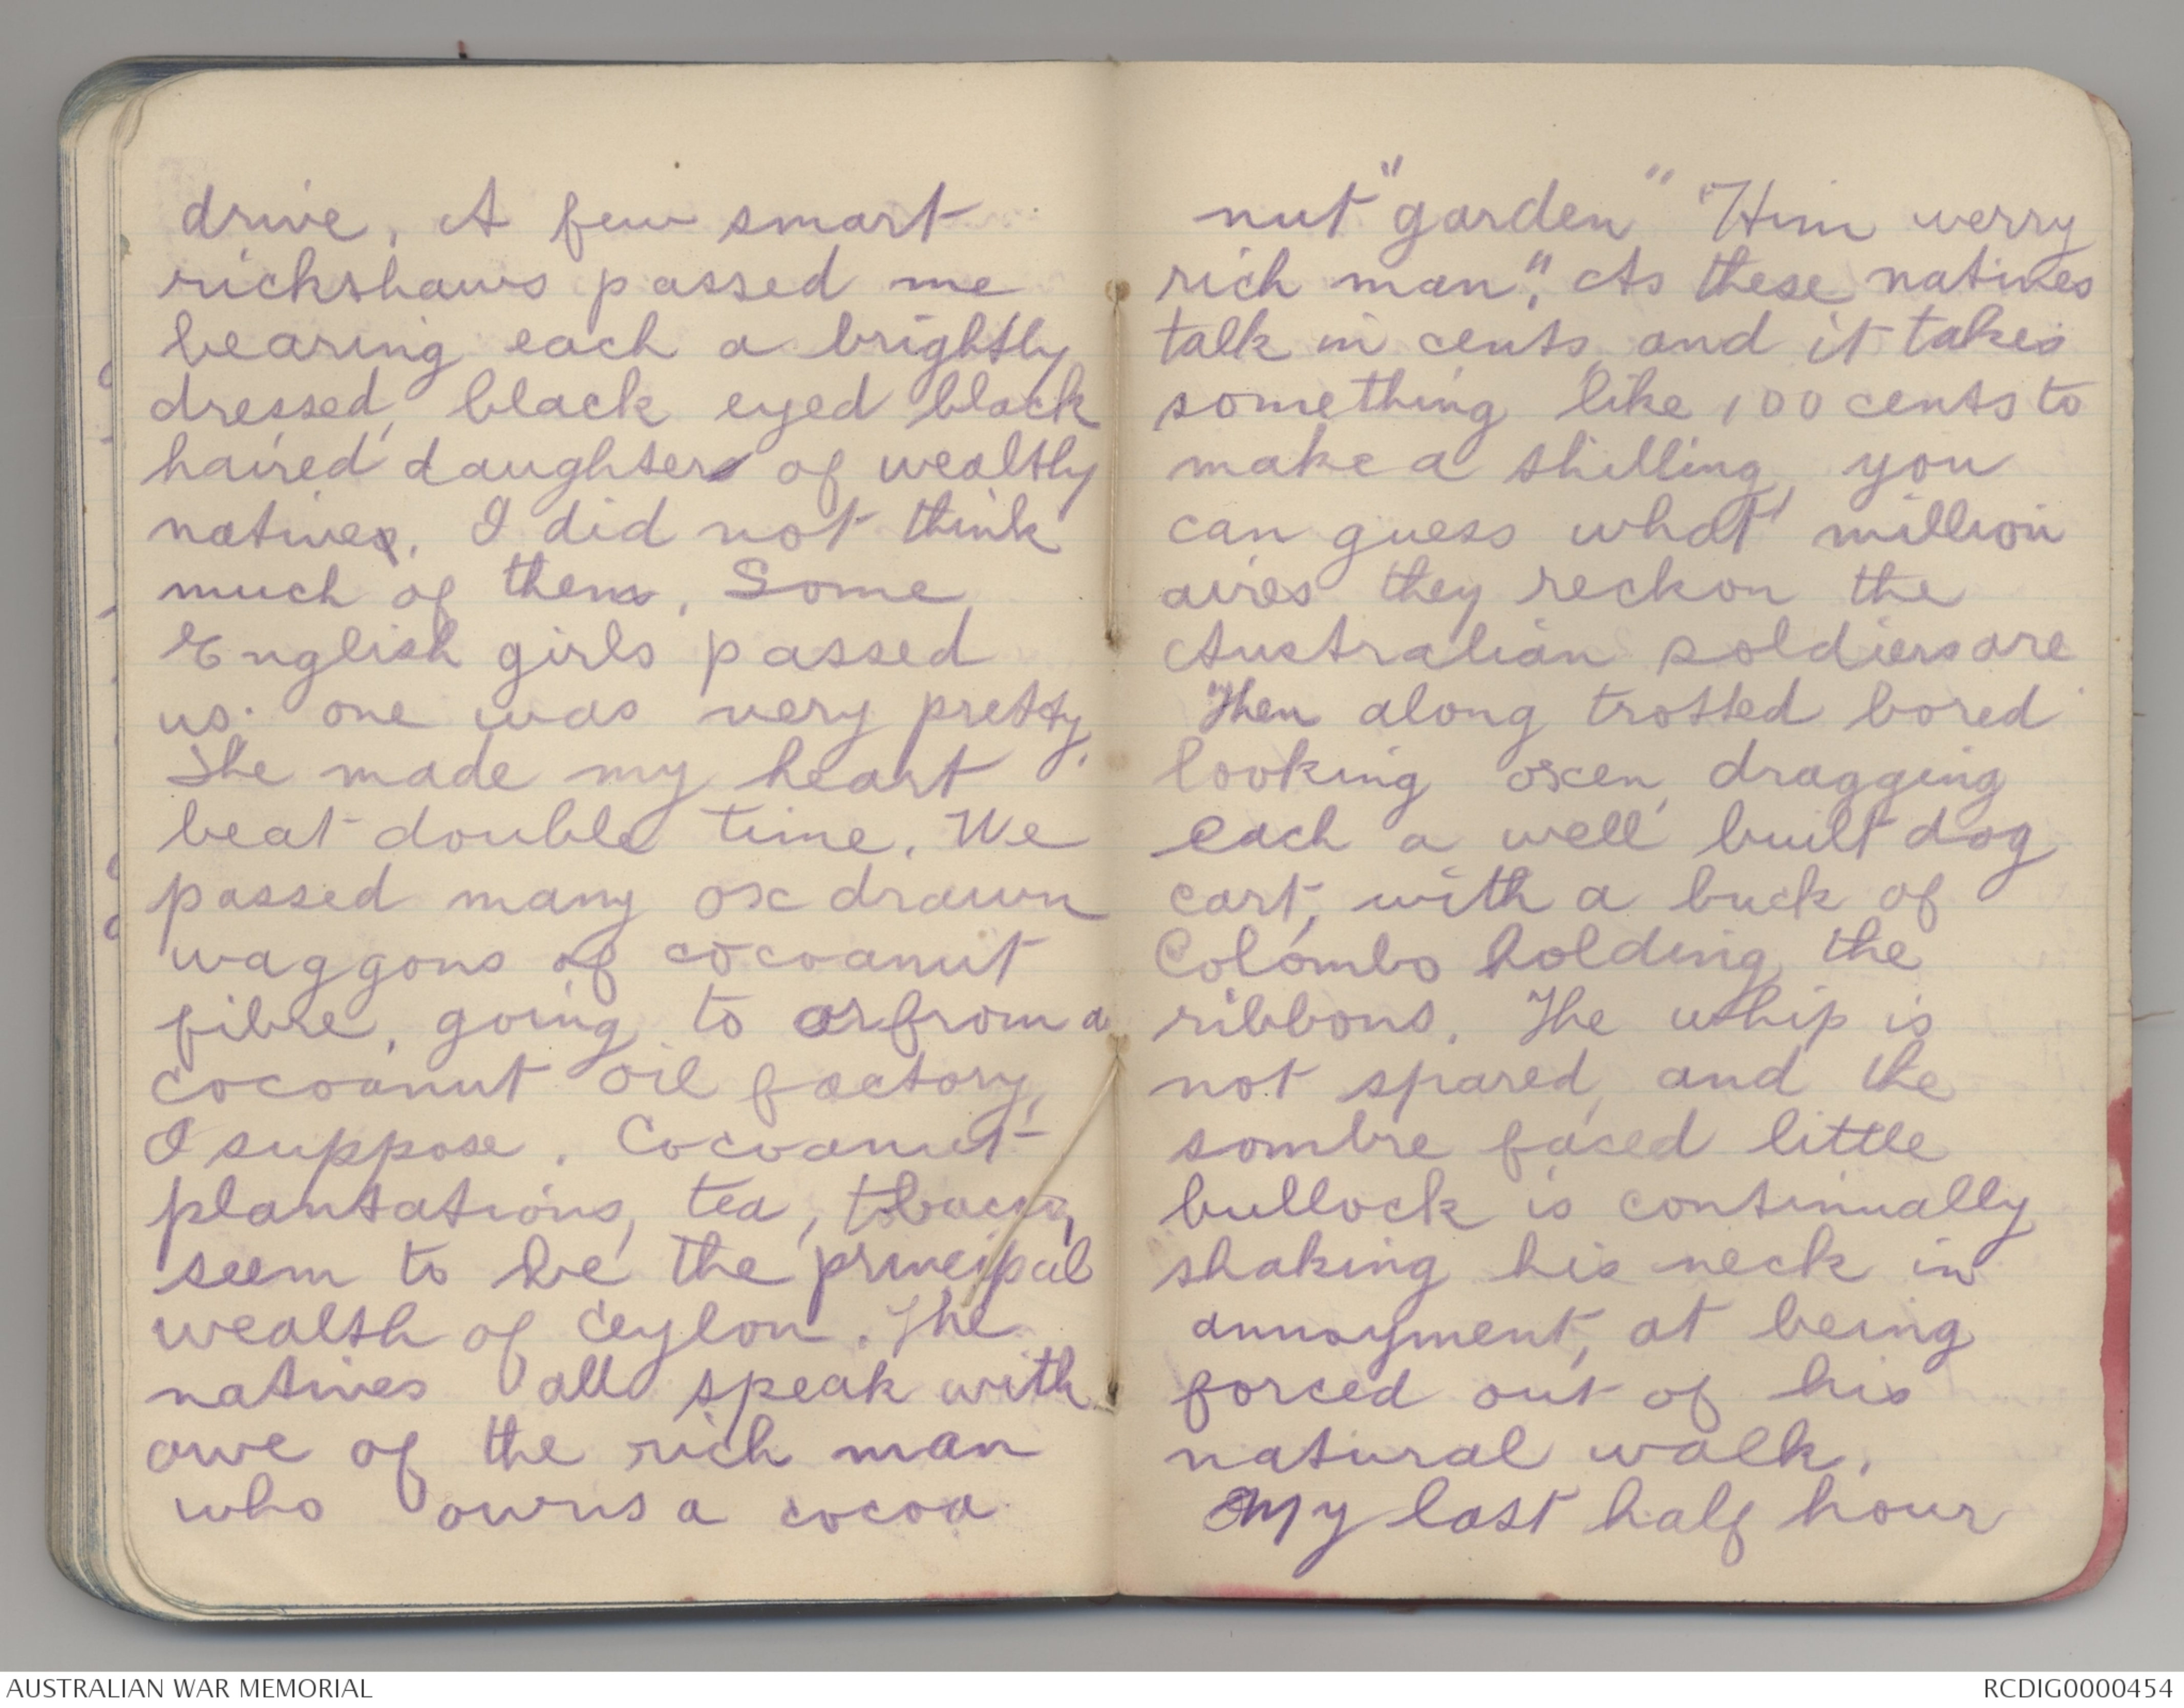 drive. A few smart
rickshaws passed me
bearing each a brightly
dressed, black eyed black
haired daughters of wealthy
natives. I did not think
much of them. Some
English girls passed
us. one was very pretty.
She made my heart
beat double time. We
passed many ox drawn
waggons of cocoanut
fibre, going to or from a
cocoanut oil factory,
I suppose. Cocoanut
plantations, tea, tobacco,
seem to be the principal
wealth of Ceylon. The
natives all speak with
awe of the rich man
who owns a cocoa
nut "garden" "Him werry
rich man". As these natives
talk in cents, and it takes
something like 100 cents to
make a shilling, you
can guess what million
aires they reckon the
Australian soldiers are
Then along trotted bored
looking oxen, dragging
each a well built dog
cart, with a buck of
Colombo holding the
ribbons. The whip is
not spared, and the
sombre faced little
bullock is continually
shaking his neck in
annoyment, at being
forced out of his
natural walk.
My last half hour
AUSTRALIAN WAR MEMORIAL
RCDIG0000454